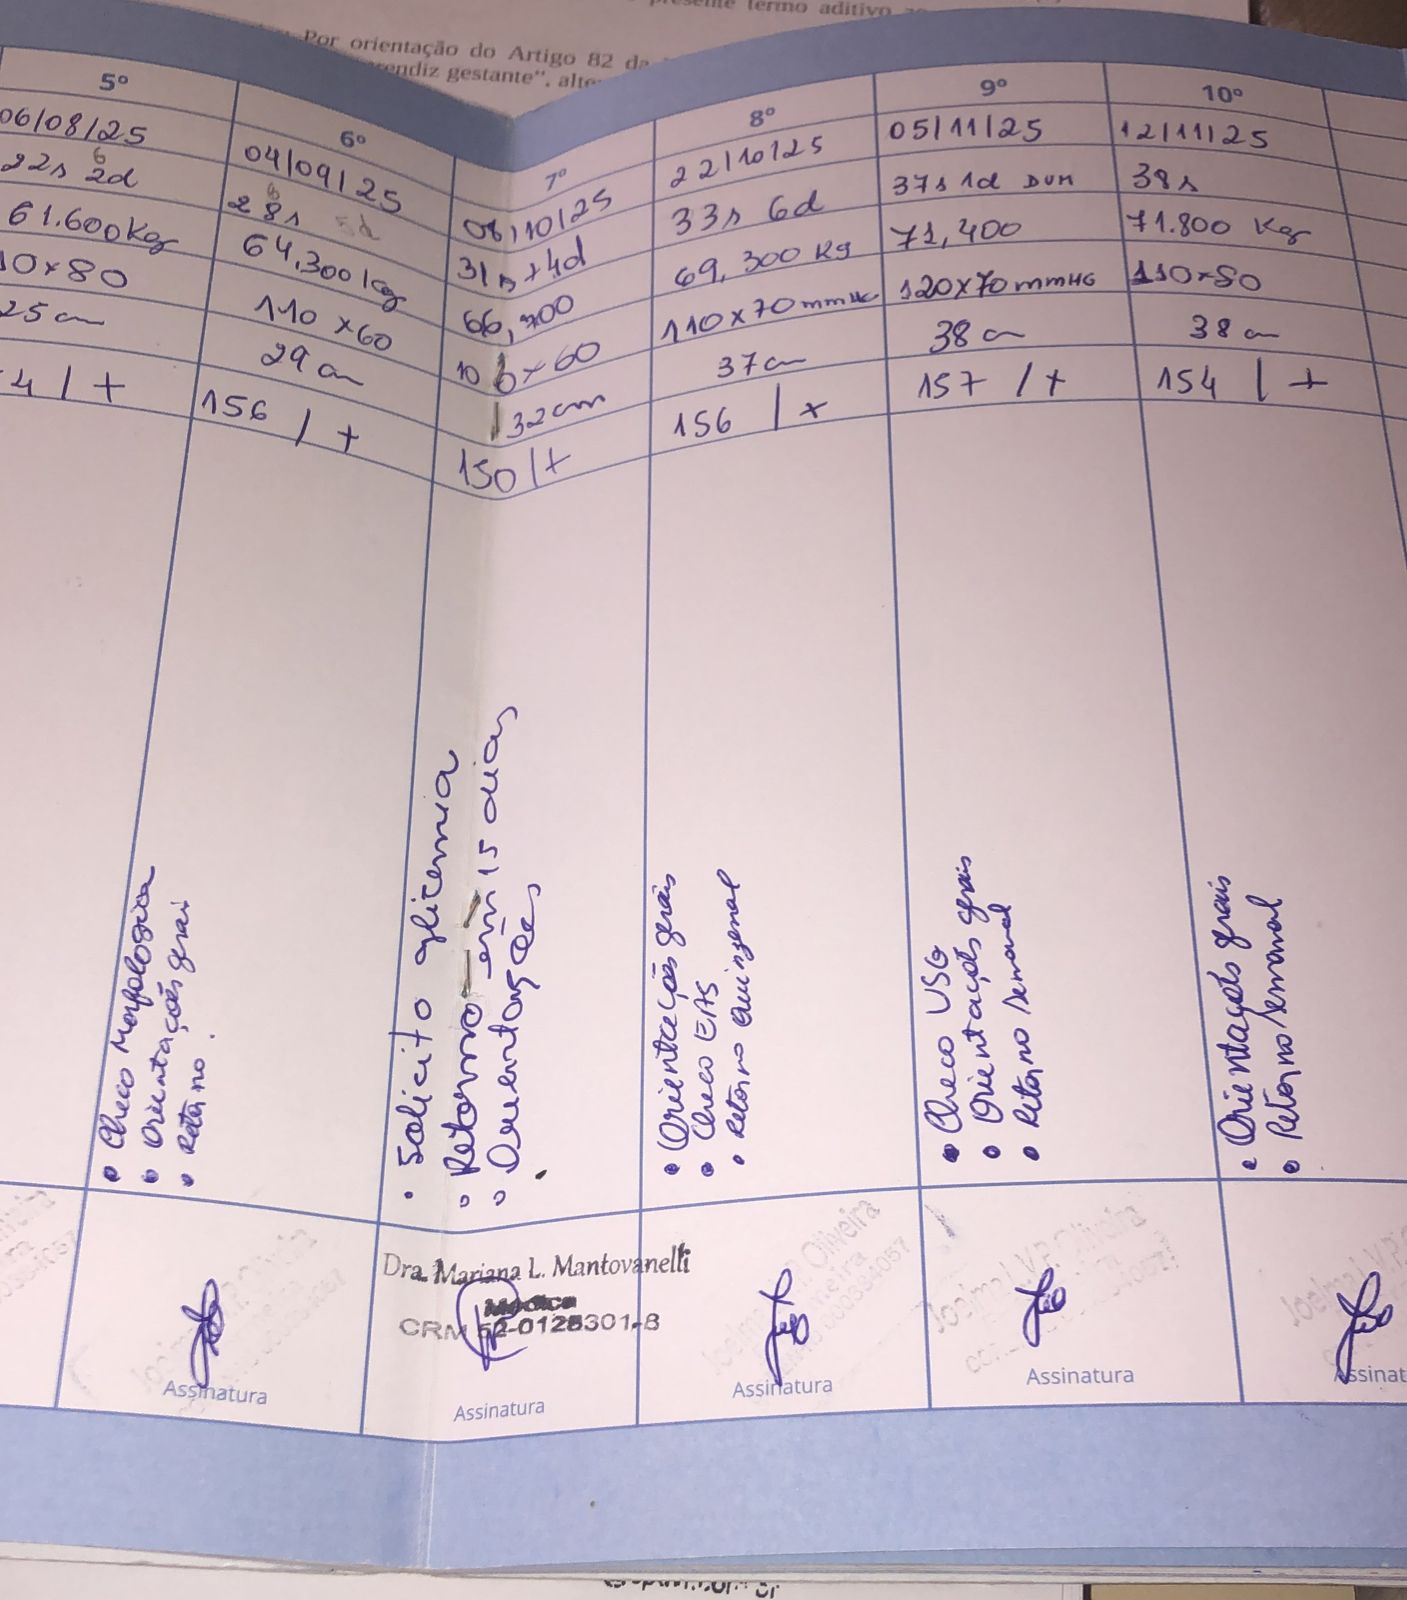 presente termo aditivo
Por orientação do Artigo 82 da
endiz gestante", alte
5º
06/08/25
22s 2d
6
61.600Kg
10x80
25cm
4 / +
6º
04/09/25
28s
6
64,300kg
110 x60
29 cm
156 / +
• Checo Morfologica
• Orientações gerais
• Retorno.
Assinatura
7º
08/10/25
31s+4d
66,700
100x60
32cm
150/+
• Solicito glicemia
• Retorno em 15 dias
• Orientações
Dra. Mariana L. Mantovanelli
Médica
CRM 52-0128301-8
Assinatura
8º
22/10/25
33s 6d
69,300 Kg
110x70mmHG
37cm
156 / +
• Orientações gerais
• Checo EAS
• Retorno Quinzenal
Oliveira
Assinatura
9º
05/11/25
37s 1d DUM
71,400
120x70mmHG
38 cm
157 / +
• Checo USG
• Orientações gerais
• Retorno Semanal
Joelma L.V.P. Oliveira
Assinatura
10º
12/11/25
38s
71.800 Kg
110x80
38 cm
154 / +
• Orientações gerais
• Retorno Semanal
Joelma L.V.P.
Assinat